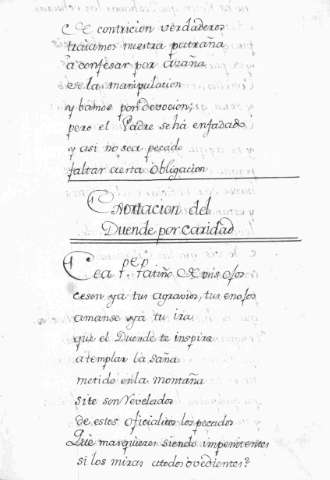 De contricion verdaderos
traiamos nuestra patraña
à confesar por azaña
es la manipulacion
y vamos por devocion;
pero el Padre se há enfadado
y asi no sea pecado
faltar aserta Obligacion
Exortacion del
Duende por Caridad
Cea P.e p.
Patiño de mis ojos
cesen ya tus agravios, tus enojos
amanse ya tu ira
que el Duende te inspira
atemplar la saña
metido en la montaña
si te son revelados
de estos oficialitos los pecados
Que mas quieres siendo impenitentes
si los miras atodos ovedientes?